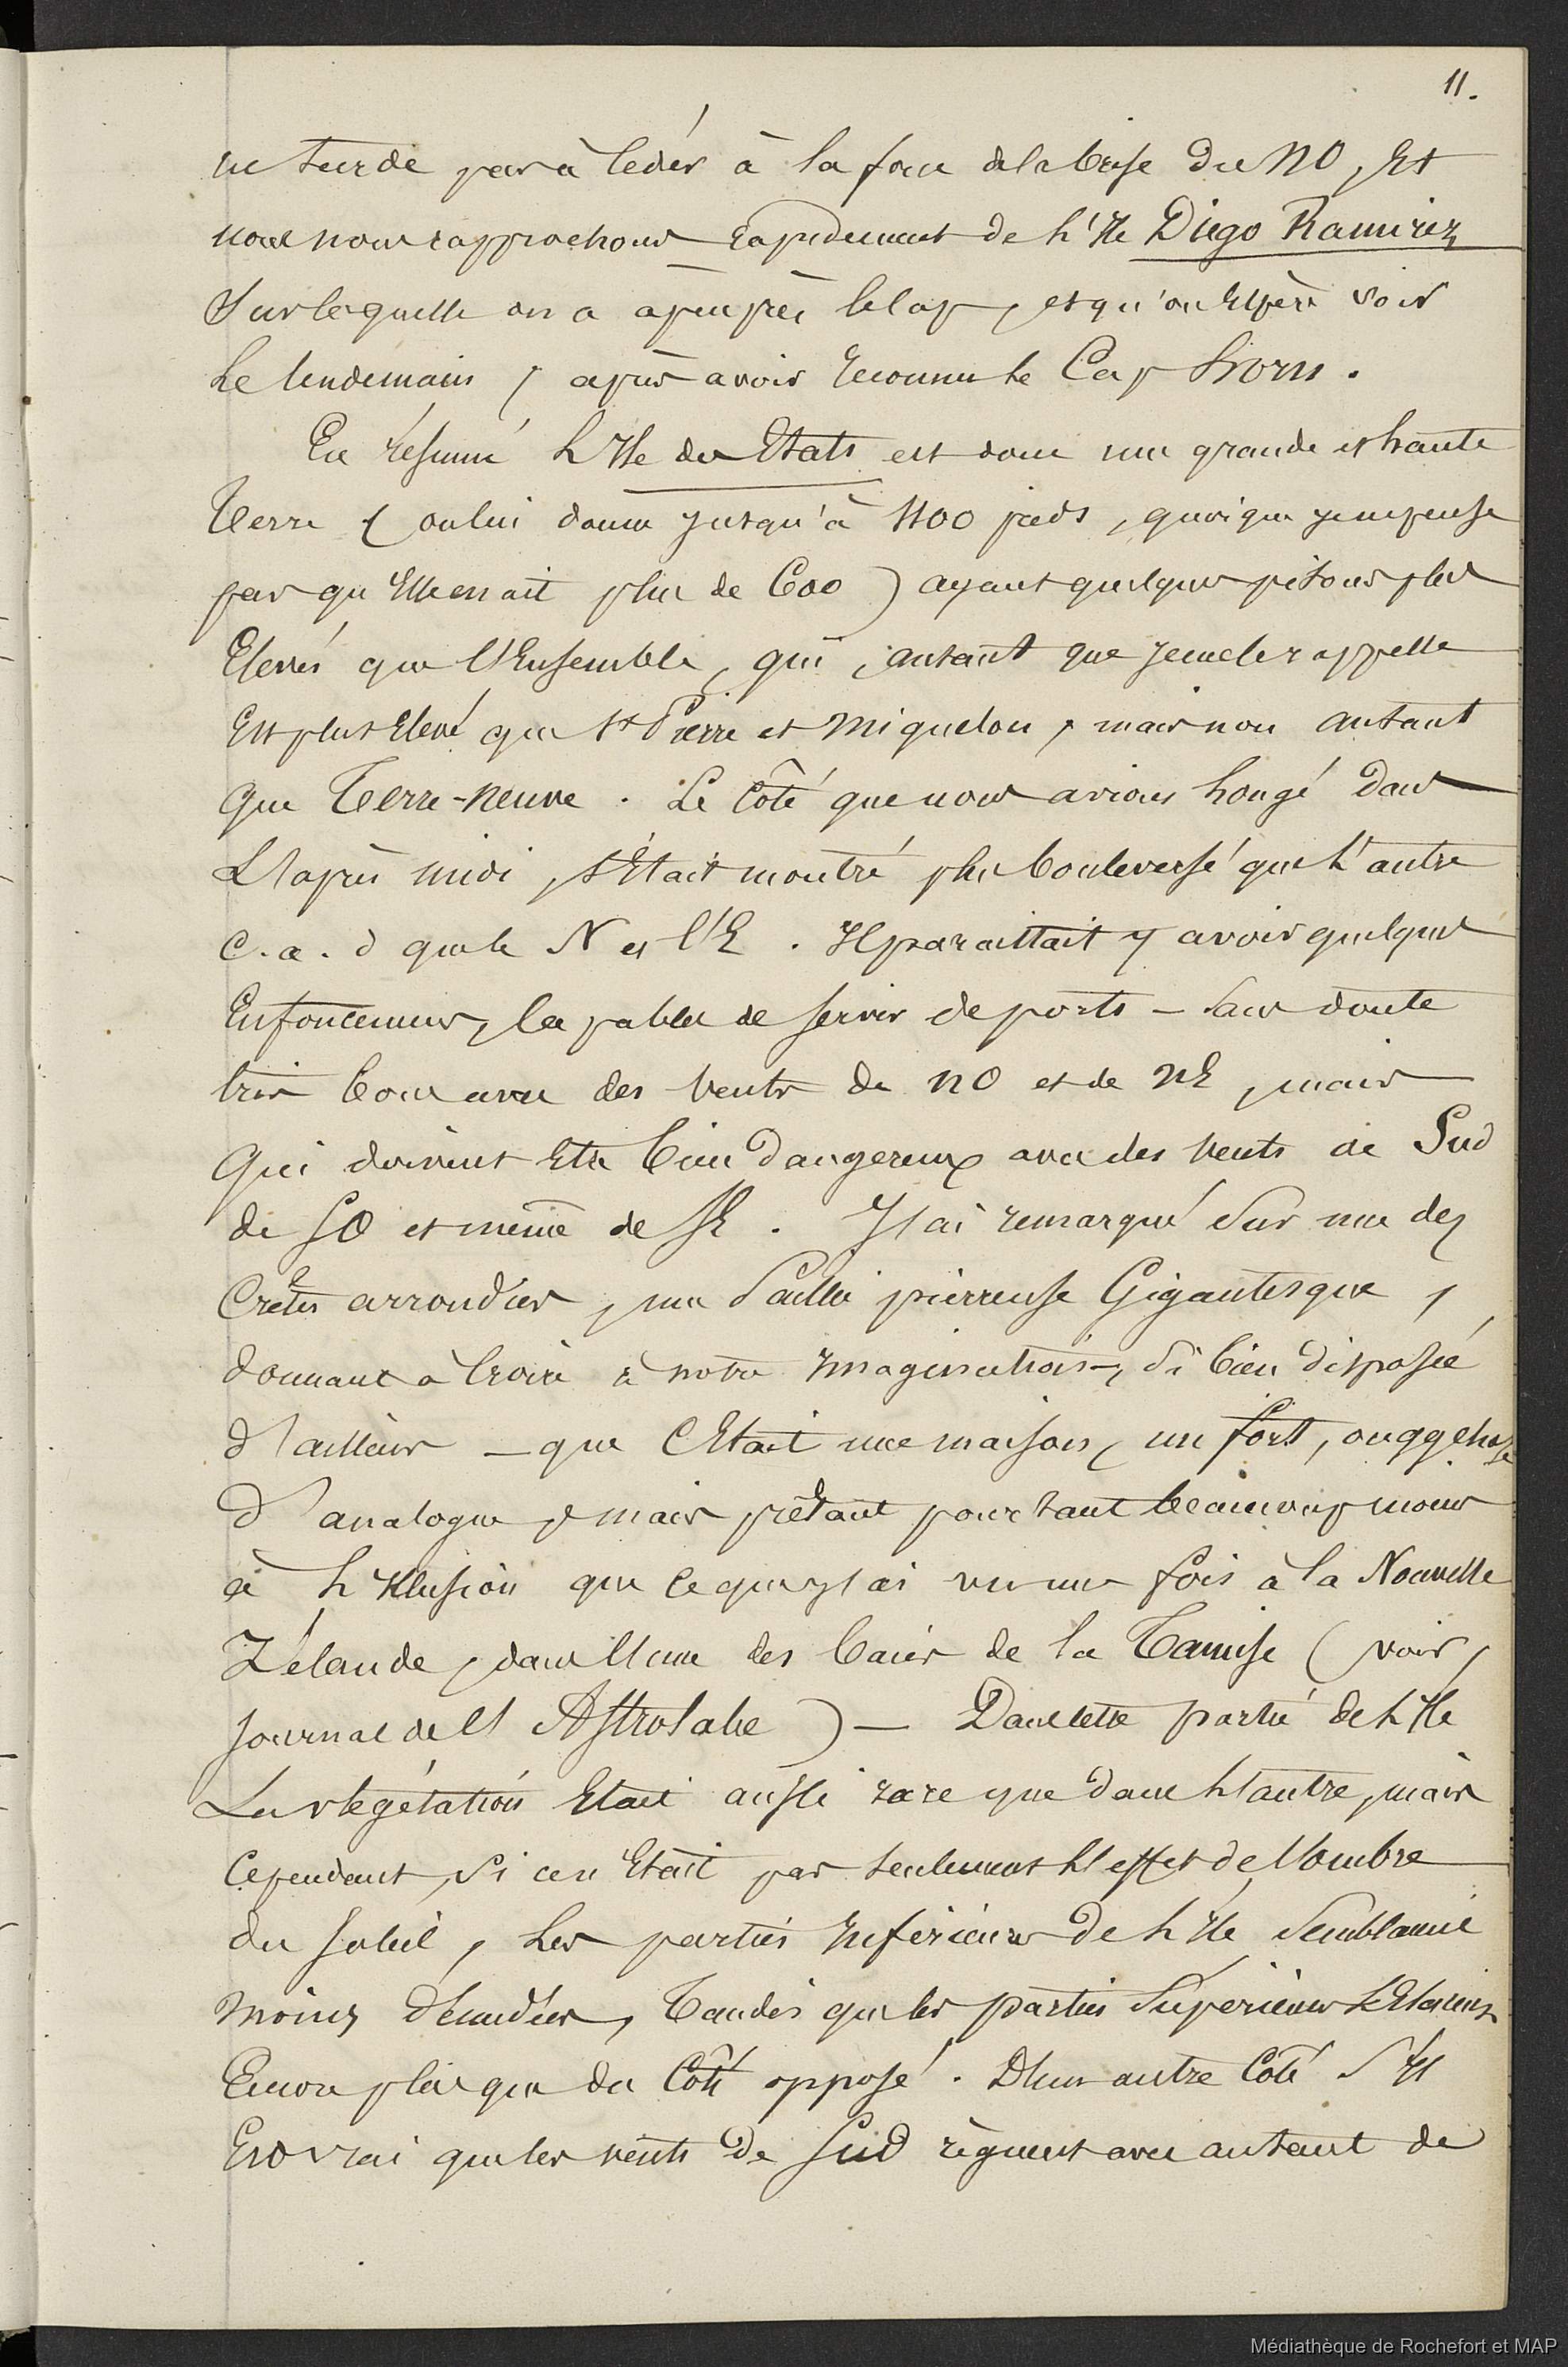 11.
ne tarde pas à céder à la force de la brise du NO, Et
nous nous rapprochons rapidement de l'Ile Diego Ramirez
Sur laquelle on a àpeuprès le cap, et qu'on Espère voir
Le lendemain, après avoir reconnu le Cap Horn.
En résumé L'Ile des Etats est donc une grande et haute
Terre (on lui donne jusqu'à 1100 pieds, quoique je ne pense
pas qu'Elle en ait plus de 600) ayant quelques pitons plus
Elevés que l'Ensemble, qui, autant que je me le rappelle
Est plus Elevé que St Pierre et Miquelon, mais non autant
Que Terre-neuve. Le Côté que nous avions longé dans
L'après midi, s'Etait montré plus bouleversé que l'autre
C.a.d que le N et l'E. Il paraittait y avoir quelques
Enfoncemens, capables de servir de ports – sans doute
très bons avec des vents de NO et de NE, mais
Qui doivent Etre bien dangereux avec des vents de Sud
de SO et même de SE. J'ai remarqué sur une des
Crêtes arrondies, une Saillie pierreuse Gigantesque,
donnant à Croire à notre Imagination, si bien disposée
d'ailleurs – que C'Etait une maison, un fort, ou qq chose
D'analogue, mais prêtant pourtant beaucoup moins
à L'Illusion que ce que j'ai vu une fois à la Nouvelle
Zélande, dans l'une des baies de la Tamise (voir,
Journal de l'Astrolabe) – Dans cette partie de L'Ile
La végétation Etait aussi rare que dans l'autre, mais
Cependant, si ce n'Etait pas seulement l'effet de l'ombre
du Soleil, Les parties Inférieures de L'Ile Semblaient
Moins dénudées, Tandis que les parties Supérieures L'Etaient
Encore plus que du Côté opposé. D'un autre Côté S'Il
Est vrai que les vents de Sud règnent avec autant de
Médiathèque de Rochefort et MAP